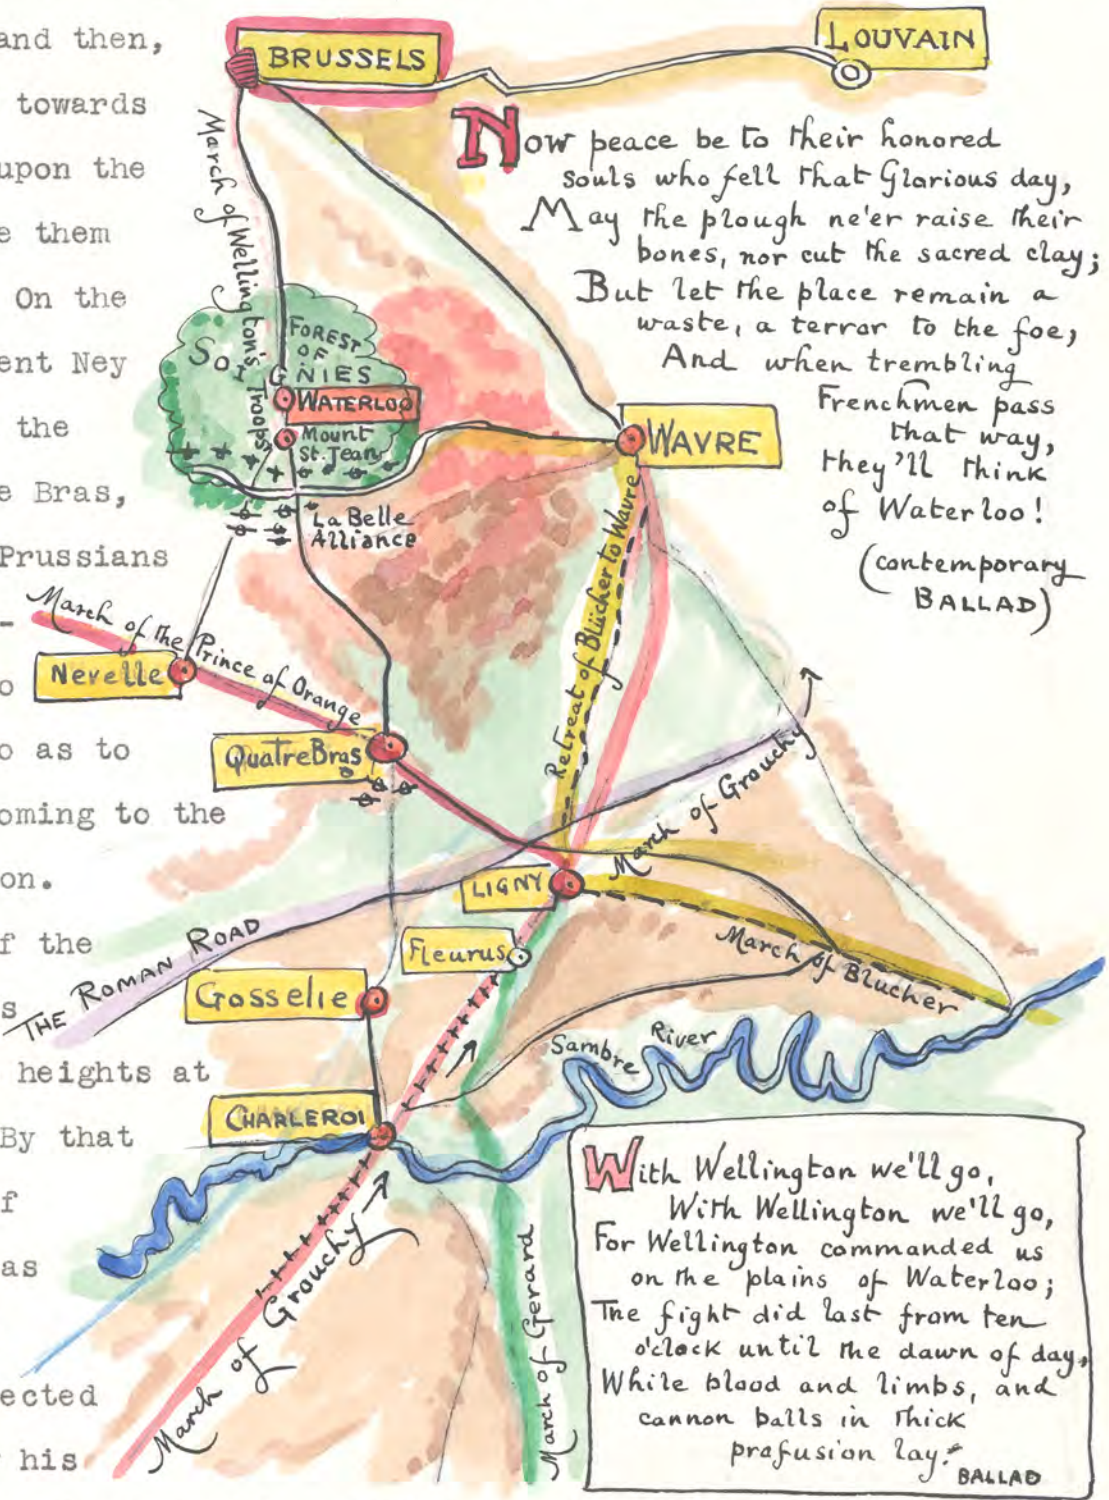 and then,
towards
upon the
e them
On the
ent Ney
the
e Bras,
Prussians
-
o
o as to
oming to the
on.
f the
s
heights at
By that
f
as
ected
his
BRUSSELS
LOUVAIN
Now peace be to their honored
souls who fell that Glorious day,
May the plough ne'er raise their
bones, nor cut the sacred clay;
But let the place remain a
waste, a terror to the foe,
And when trembling
Frenchmen pass
that way,
they'll think
of Waterloo!
(contemporary
BALLAD)
March of Wellington's Troops
FOREST
OF
SOIGNIES
WATERLOO
Mount
St. Jean
WAVRE
La Belle
Alliance
Retreat of Blücher to Wavre
March of the Prince of Orange
Nevelle
Quatre Bras
March of Grouchy
LIGNY
THE ROMAN ROAD
Fleurus
March of Blucher
Gosselie
Sambre River
CHARLEROI
March of Grouchy
March of Gerard
With Wellington we'll go,
With Wellington we'll go,
For Wellington commanded us
on the plains of Waterloo;
The fight did last from ten
o'clock until the dawn of day,
While blood and limbs, and
cannon balls in thick
prafusion lay.
BALLAD